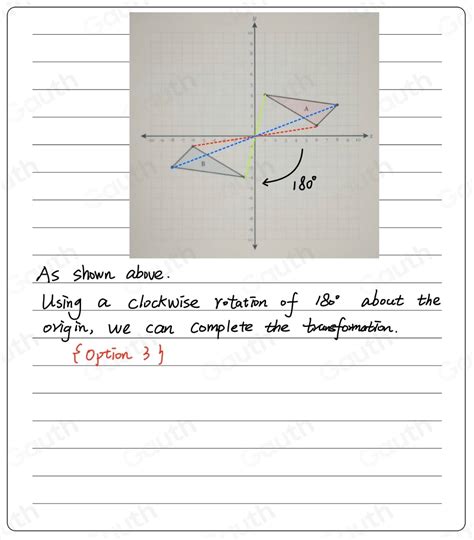 A
B
180°
As shown above.
Using a clockwise rotation of 180° about the
origin, we can complete the transfomation.
{Option 3}